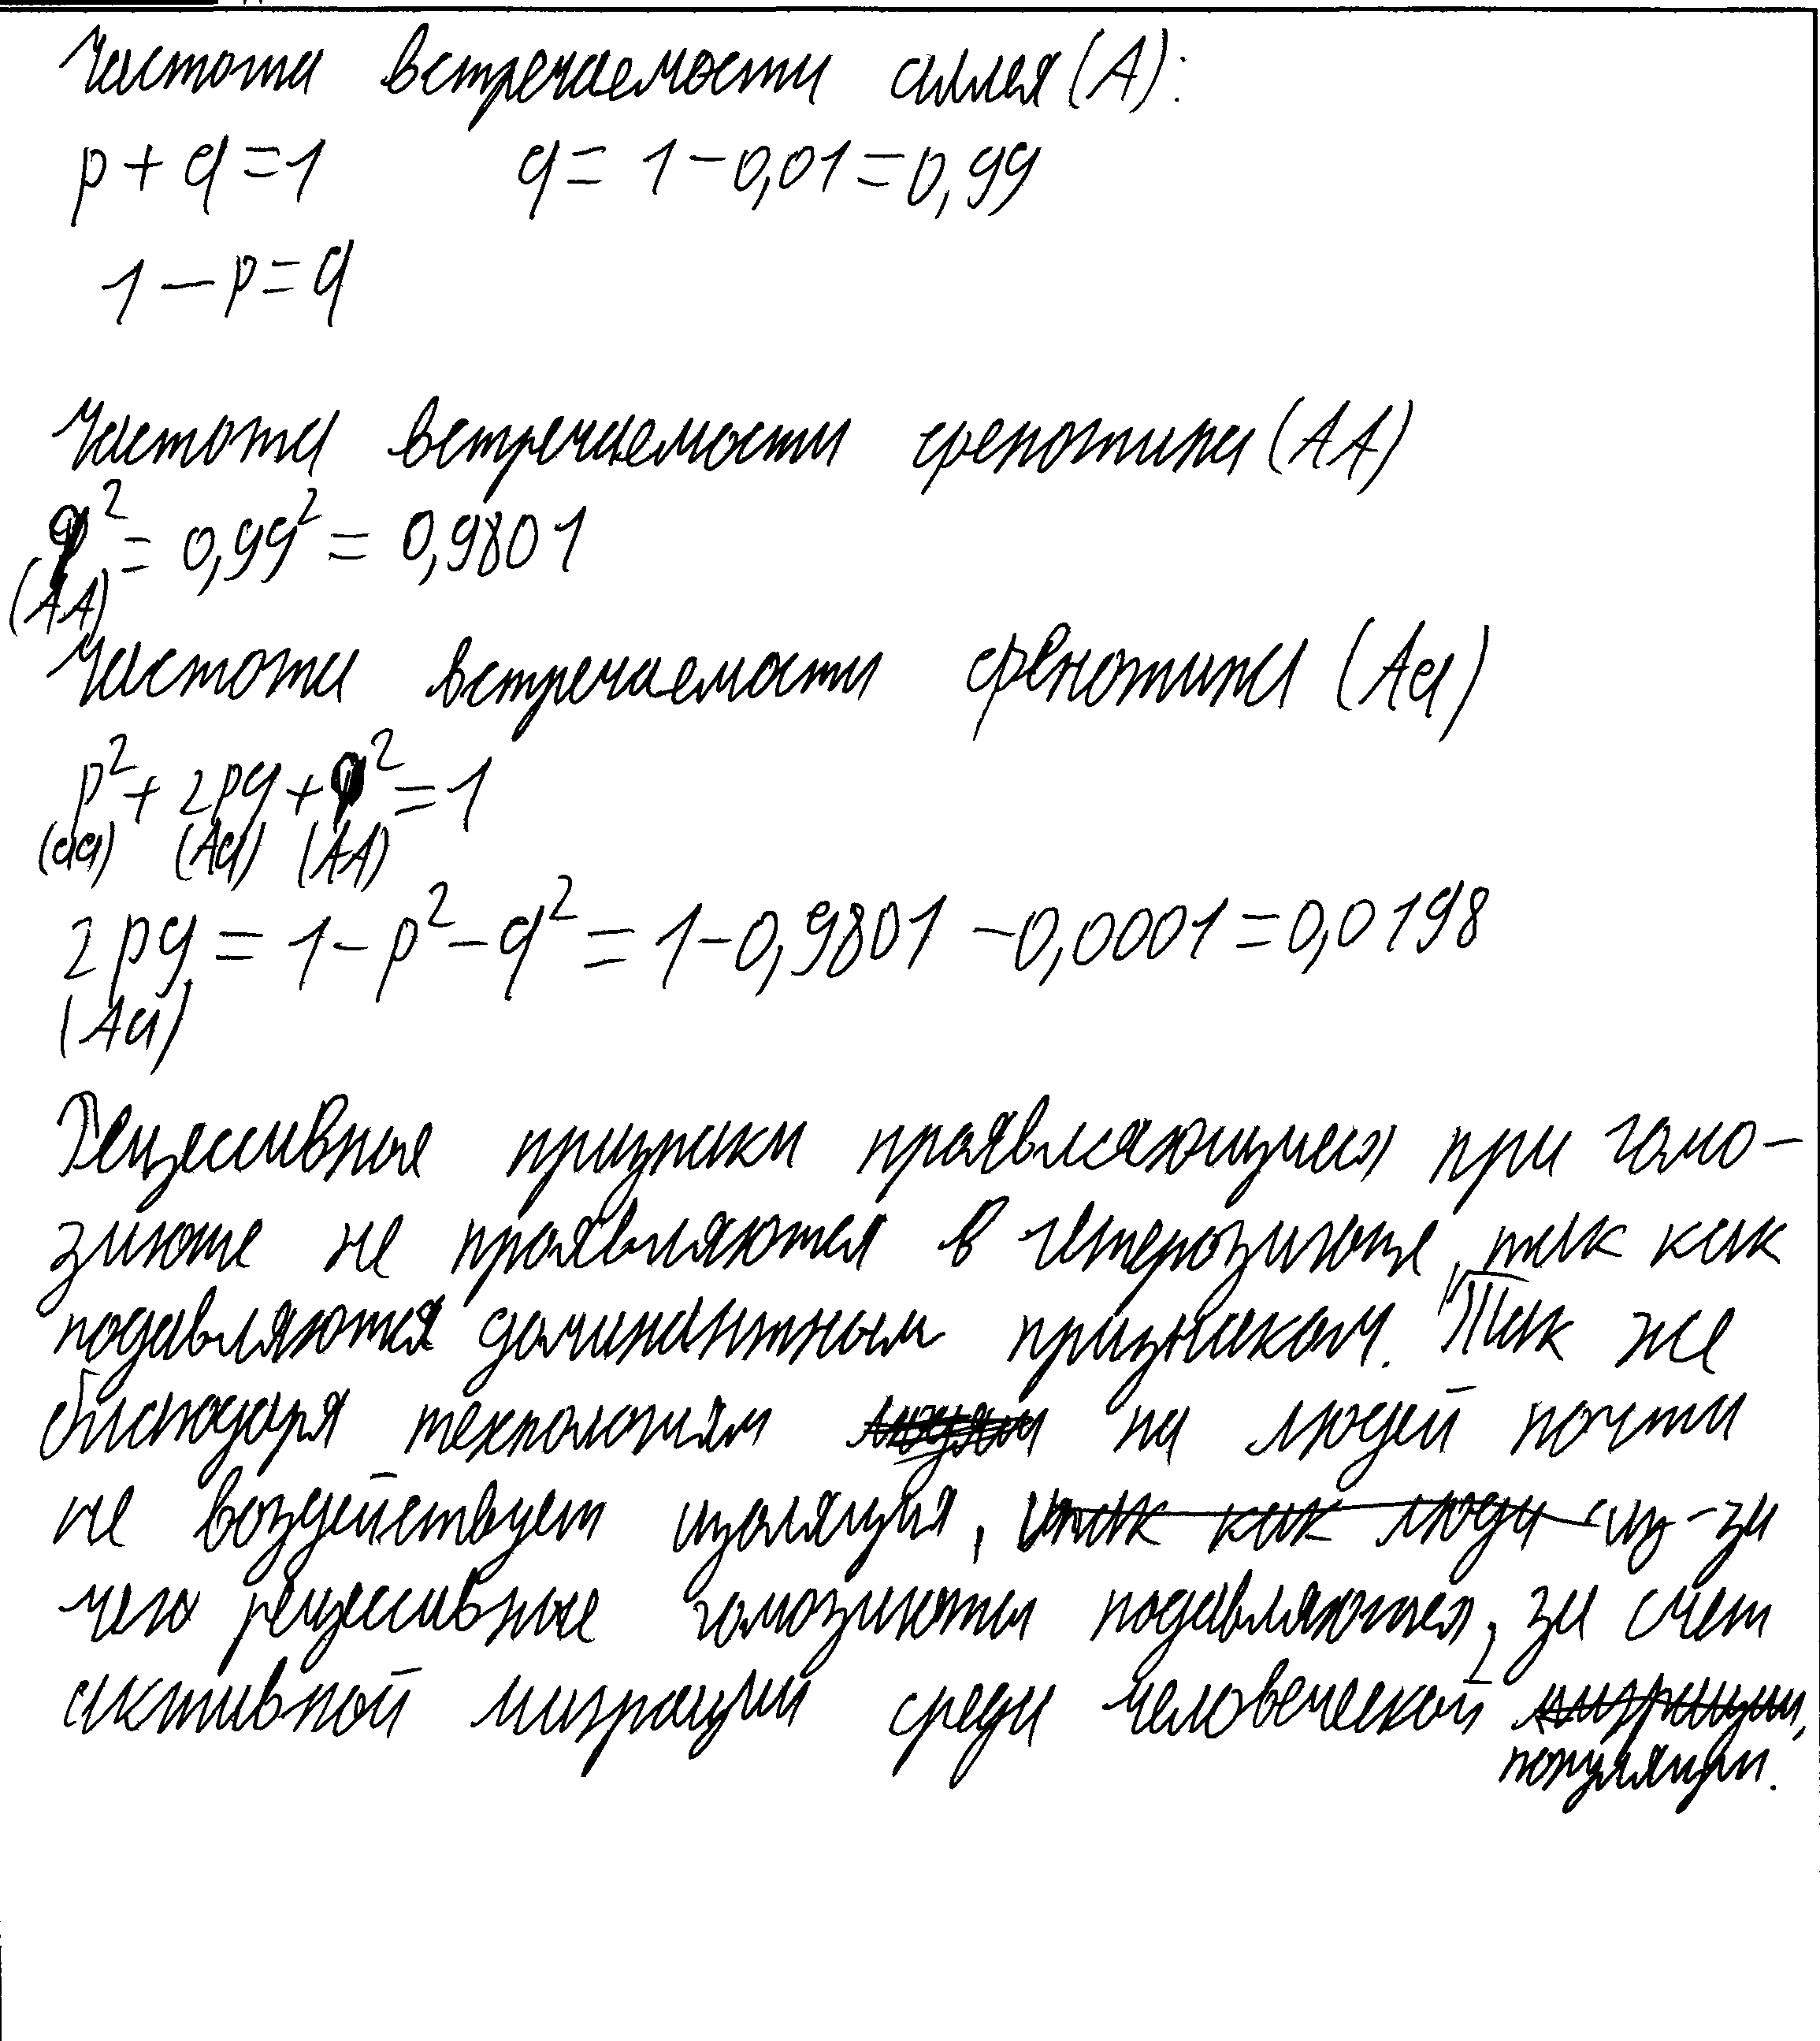 Частота встречаемости аллея (А):
p + q = 1 q = 1 − 0,01 = 0,99
1 − p = q
Частота встречаемости фенотипа (АА)
q² = 0,99² = 0,9801
(АА)
Частота встречаемости фенотипа (Аа)
p² + 2pq + q² = 1
(аа) (Аа) (АА)
2pq = 1 − p² − q² = 1 − 0,9801 − 0,0001 = 0,0198
(Аа)
Рецессивные признаки проявляющиеся при гомо-
зиготе не проявляются в гетерозиготе, так как
подавляются доминантным признаком. Так же
благодаря технологиям на людей почти
не воздействует изоляция, из-за
чего рецессивные гомозиготы подавляются, за счет
активной миграции среди человеческой
популяции.